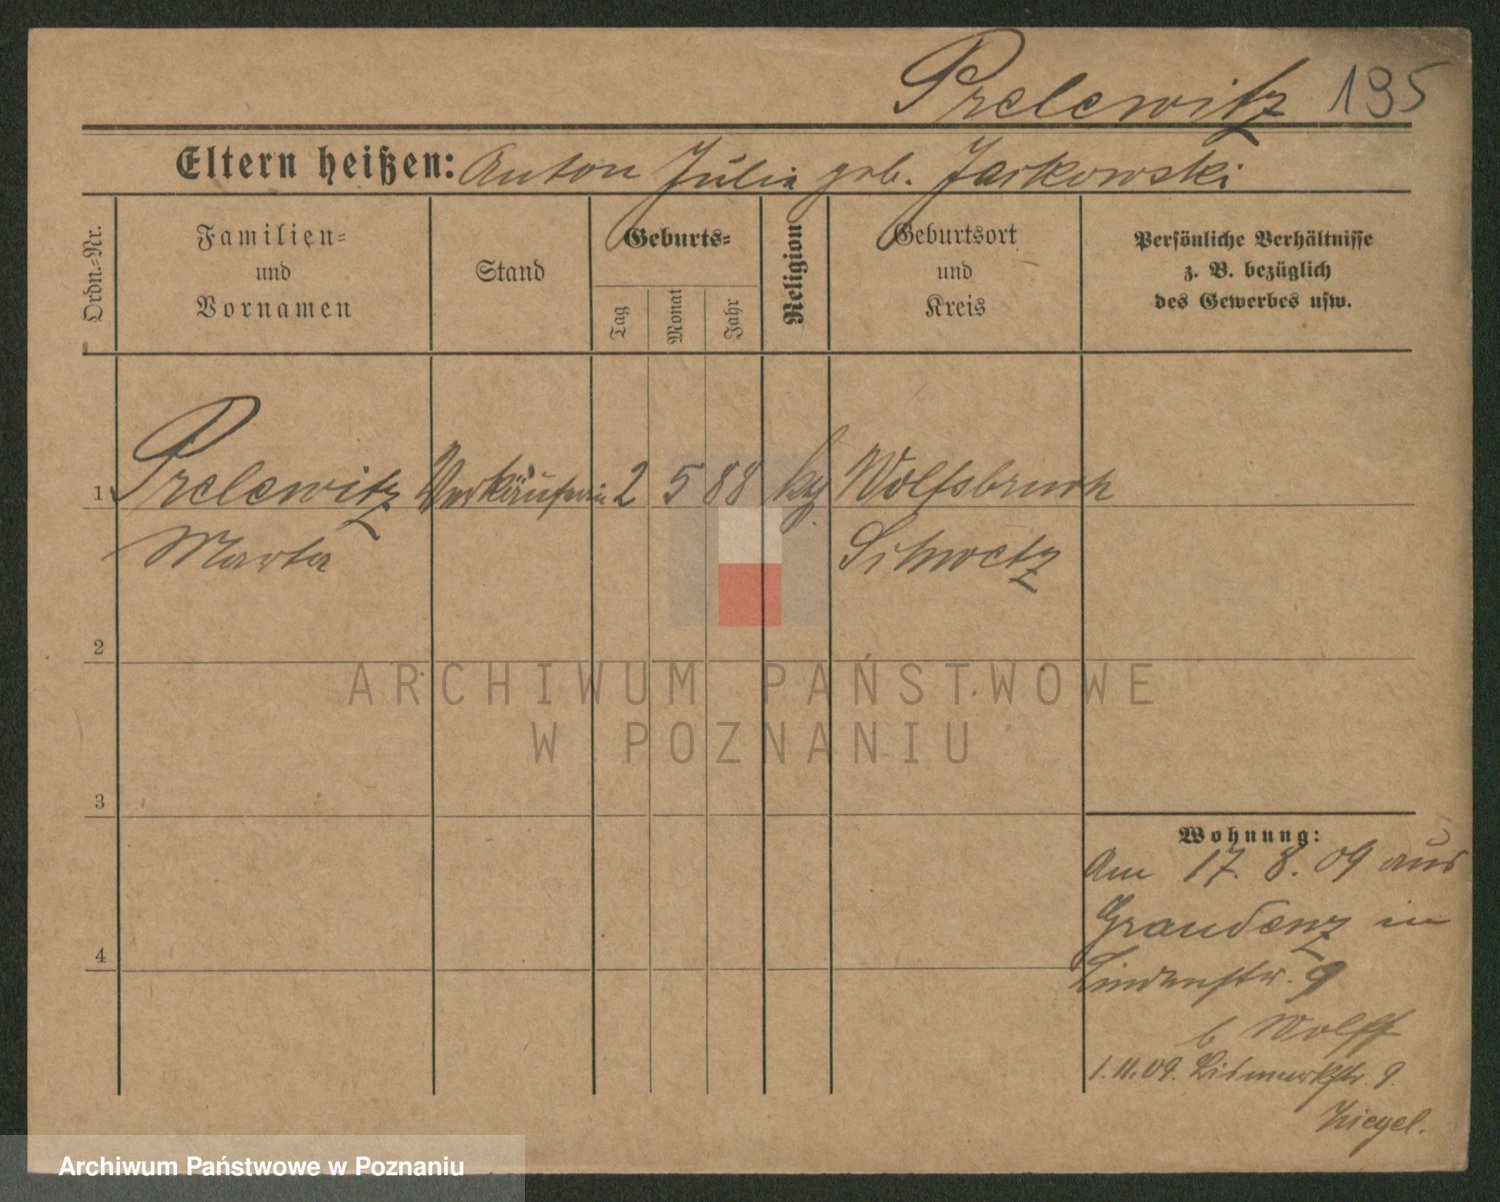 Prelewitz 195
Eltern heißen: Anton Julia geb. Jarkowski
Ordn.-Nr.
Familien-
und
Vornamen
Stand
Geburts-
Tag
Monat
Jahr
Religion
Geburtsort
und
Kreis
Persönliche Verhältnisse
z. B. bezüglich
des Gewerbes usw.
1 Prelewitz Verkäuferin 2 5 88 kg Wolfsbruch
Marta Schwetz
2
3
4
Wohnung:
Am 17. 8. 09 aus
Graudenz in
Lindenstr. 9
b Wolff
1. 11. 09. Bismarkstr 9.
Ziegel.
ARCHIWUM PAŃSTWOWE
W POZNANIU
Archiwum Państwowe w Poznaniu